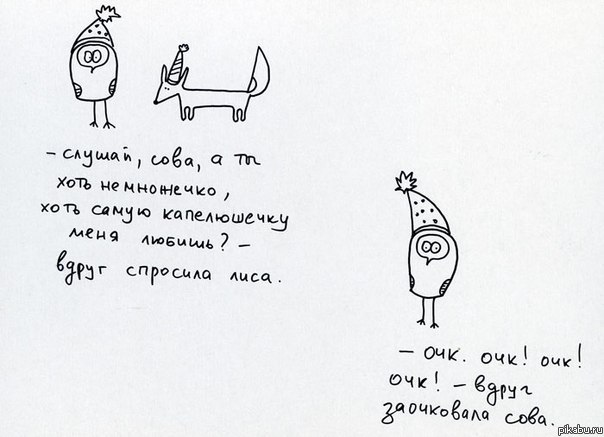 – слушай, сова, а ты
хоть немножечко,
хоть самую капелюшечку
меня любишь? –
вдруг спросила лиса.
– очк. очк! очк!
очк! – вдруг
заочковала сова.
pikabu.ru